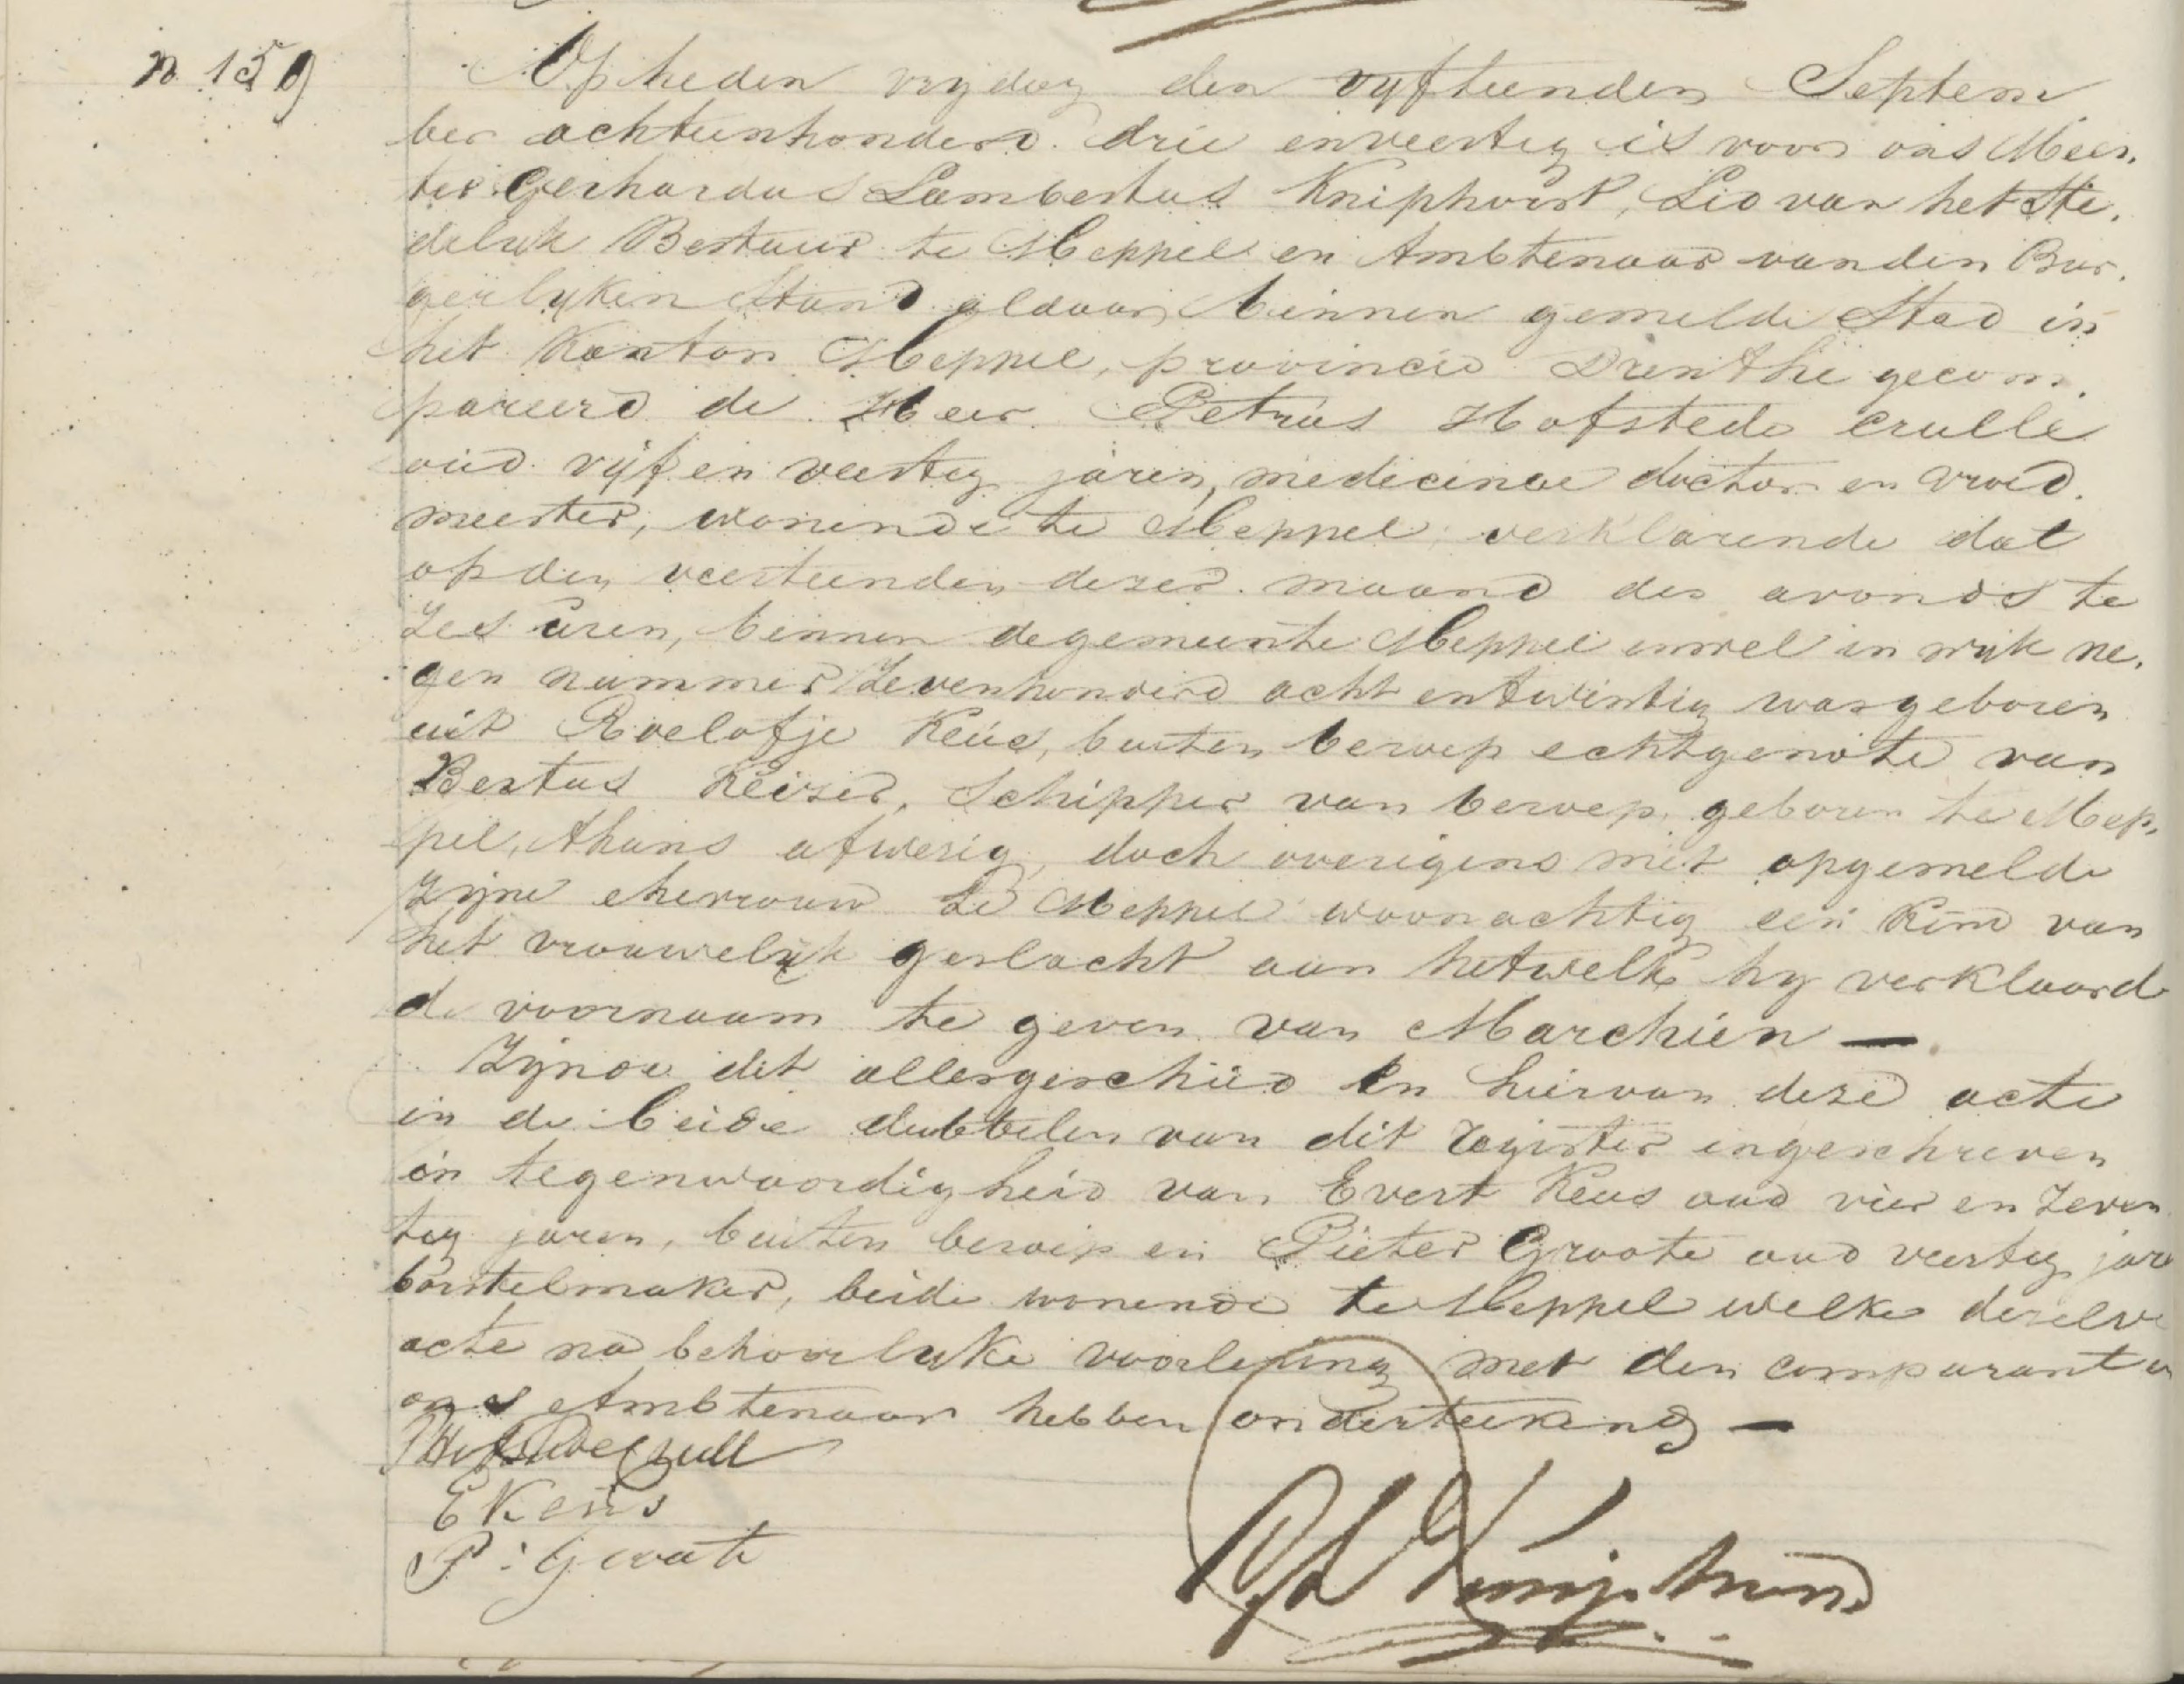 n 159
Op heden vrydag den vyftienden Septem
ber achttienhonderd drie en veertig is voor ons Mees.
ter Gerhardus Lambertus Kniphorst, Lid van het Ste.
delyk Bestuur te Meppel en Ambtenaar van den Bur.
gerlyken Stand aldaar, binnen gemelde Stad in
het Kanton Meppel, provincie Drenthe gecom.
pareerd de Heer Petrus Hofstede Crulle
oud vyf en veertig jaren, medicinae doctor en vroed.
meester, wonende te Meppel, verklarende dat
op den veertienden dezer maand des avonds te
Zes uren, binnen de gemeente Meppel en wel in wyk ne.
gen nummer Zevenhonderd acht en twintig was geboren
uit Roelofje Keus, buiten beroep echtgenote van
Bertus Keizer, Schipper van beroep, geboren te Mep,
pel, thans afwezig, doch overigens met opgemelde
Zyne ehevrouw te Meppel woonachtig een Kind van
het vrouwelyk geslacht aan hetwelk hy verklaard
de voornaam te geven van Marchien —
Zynde dit alles geschied en hiervan deze acte
in de beide dubbelen van dit register ingeschreven
in tegenwoordigheid van Evert Keus oud vier en Zeven
tig jaren, buiten beroep en Pieter Groote oud veertig jare
borstelmaker, beide wonende te Meppel welke dezelve
acte na behoorlyke voorlezing met den comparant en
ons Ambtenaar hebben onderteekend —
PHofstede Crull
E Keus
P: Groote
GL Kniphorst